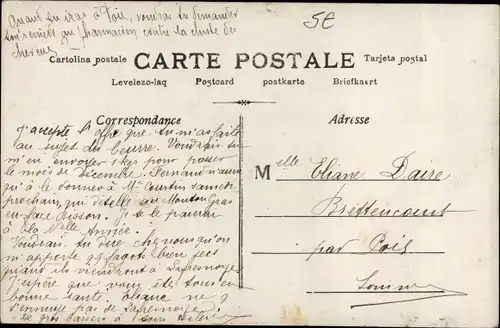 Quand tu iras à Poix, voudras tu demander
un remède au pharmacien contre la chute des
cheveux
5E
CARTE POSTALE
Cartolina postale
Tarjeta postal
Levelezo-laq Postcard postkarte Briefkaart
Correspondance
Adresse
J'accepte l'offre que tu m'as faite
au sujet du beurre. Voudrais tu
m'en envoyer 1 kgr pour passer
le mois de décembre. Fernand n'aura
qu'à le donner à Mr Courtin samedi
prochain, qui dételle au Mouton Gras
en face Bisson. Je te le paierai
à la Nlle Année.
Voudrais tu dire chez nous qu'on
m'apporte 25 fagots bien secs
quand ils viendront à
J'espère que vous êtes tous en
bonne santé. Eliane ne
s'ennuye pas de
De gros baisers à tous
Melle Eliane Daire
Brettencourt
par Poix
Somme